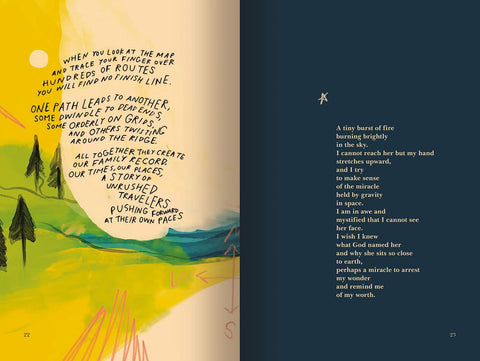 WHEN YOU LOOK AT THE MAP
AND TRACE YOUR FINGER OVER
HUNDREDS OF ROUTES
YOU WILL FIND NO FINISH LINE.
ONE PATH LEADS TO ANOTHER,
SOME DWINDLE TO DEAD ENDS,
SOME ORDERLY ON GRIDS,
AND OTHERS TWISTING
AROUND THE RIDGE.
ALL TOGETHER THEY CREATE
OUR FAMILY RECORD.
OUR TIMES, OUR PLACES,
A STORY OF
UNRUSHED
TRAVELERS
PUSHING FORWARD
AT THEIR OWN PACES
S
22
A tiny burst of fire
burning brightly
in the sky.
I cannot reach her but my hand
stretches upward,
and I try
to make sense
of the miracle
held by gravity
in space.
I am in awe and
mystified that I cannot see
her face.
I wish I knew
what God named her
and why she sits so close
to earth,
perhaps a miracle to arrest
my wonder
and remind me
of my worth.
23